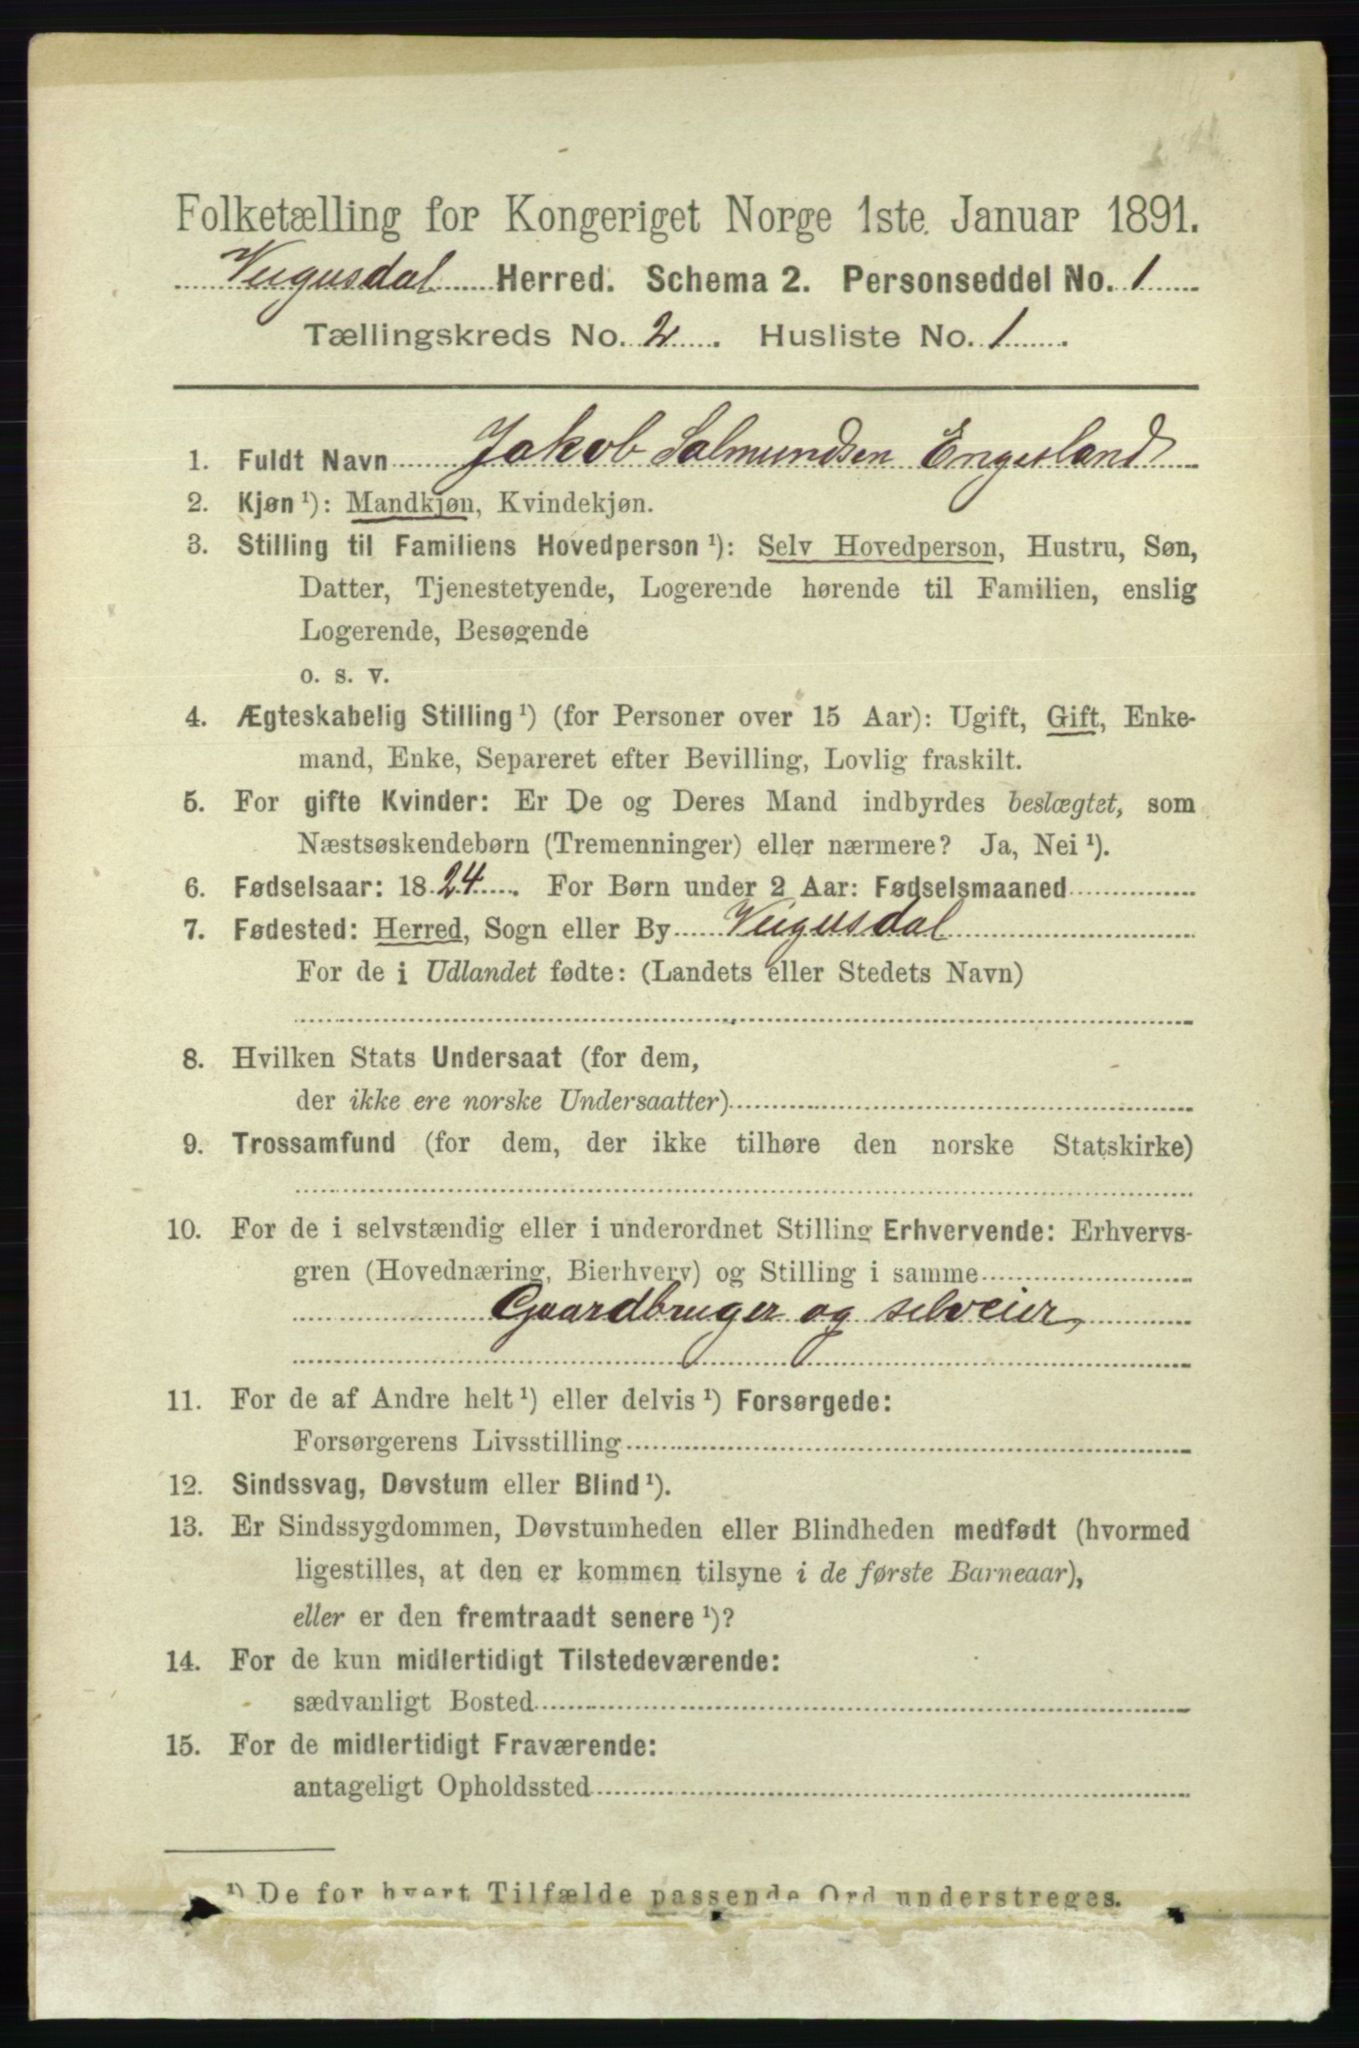 Folketælling for Kongeriget Norge 1ste Januar 1891.
Veigusdal Herred. Schema 2. Personseddel No. 1
Tællingskreds No. 2. Husliste No. 1.
1. Fuldt Navn Jakob Salmundsen Engesland
2. Kjøn ¹): Mandkjøn, Kvindekjøn.
3. Stilling til Familiens Hovedperson ¹): Selv Hovedperson, Hustru, Søn,
Datter, Tjenestetyende, Logerende hørende til Familien, enslig
Logerende, Besøgende
o. s. v.
4. Ægteskabelig Stilling ¹) (for Personer over 15 Aar): Ugift, Gift, Enke-
mand, Enke, Separeret efter Bevilling, Lovlig fraskilt.
5. For gifte Kvinder: Er De og Deres Mand indbyrdes beslægtet, som
Næstsøskendebørn (Tremenninger) eller nærmere? Ja, Nei ¹).
6. Fødselsaar: 1824. For Børn under 2 Aar: Fødselsmaaned
7. Fødested: Herred, Sogn eller By Veigusdal
For de i Udlandet fødte: (Landets eller Stedets Navn)
8. Hvilken Stats Undersaat (for dem,
der ikke ere norske Undersaatter)
9. Trossamfund (for dem, der ikke tilhøre den norske Statskirke)
10. For de i selvstændig eller i underordnet Stilling Erhvervende: Erhvervs-
gren (Hovednæring, Bierhverv) og Stilling i samme
Gaardbruger og selveier
11. For de af Andre helt ¹) eller delvis ¹) Forsørgede:
Forsørgerens Livsstilling
12. Sindssvag, Døvstum eller Blind ¹).
13. Er Sindssygdommen, Døvstumheden eller Blindheden medfødt (hvormed
ligestilles, at den er kommen tilsyne i de første Barneaar),
eller er den fremtraadt senere ¹)?
14. For de kun midlertidigt Tilstedeværende:
sædvanligt Bosted
15. For de midlertidigt Fraværende:
antageligt Opholdssted
¹) De for hvert Tilfælde passende Ord understreges.